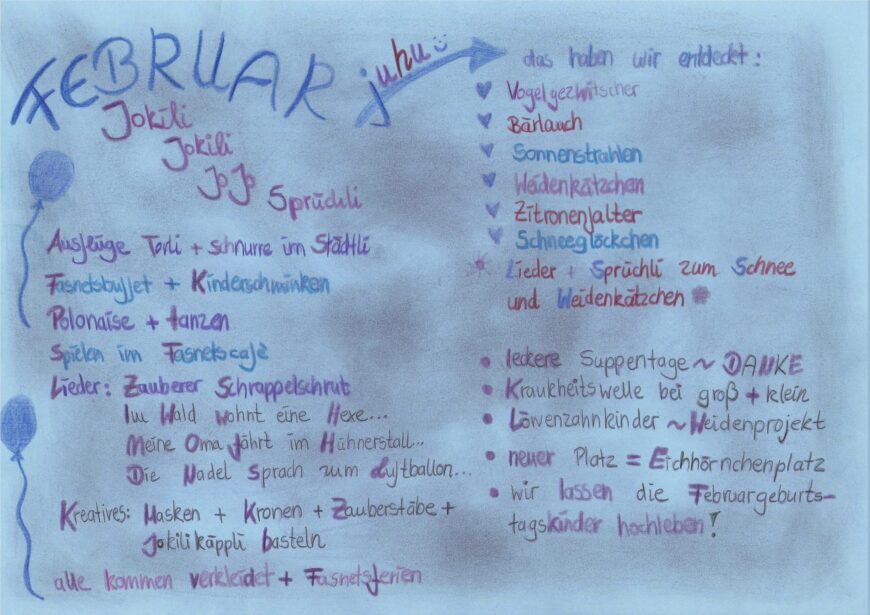 FEBRUAR
juhu
Jokili
Jokili
JoJo
Sprüchli
Ausflüge Törli + schnurre im Städtli
Fasnetsbuffet + Kinderschminken
Polonaise + tanzen
Spielen im Fasnetscafé
Lieder: Zauberer Schrappelschrut
Im Wald wohnt eine Hexe...
Meine Oma fährt im Hühnerstall...
Die Nadel sprach zum Luftballon...
Kreatives: Masken + Kronen + Zauberstäbe +
Jokilikäppli basteln
alle kommen verkleidet + Fasnetsferien
das haben wir entdeckt:
Vogelgezwitscher
Bärlauch
Sonnenstrahlen
Weidenkätzchen
Zitronenfalter
Schneeglöckchen
Lieder + Sprüchli zum Schnee
und Weidenkätzchen
• leckere Suppentage ~ DANKE
• Krankheitswelle bei groß + klein
• Löwenzahnkinder ~ Weidenprojekt
• neuer Platz = Eichhörnchenplatz
• wir lassen die Februargeburts-
tagskinder hochleben!